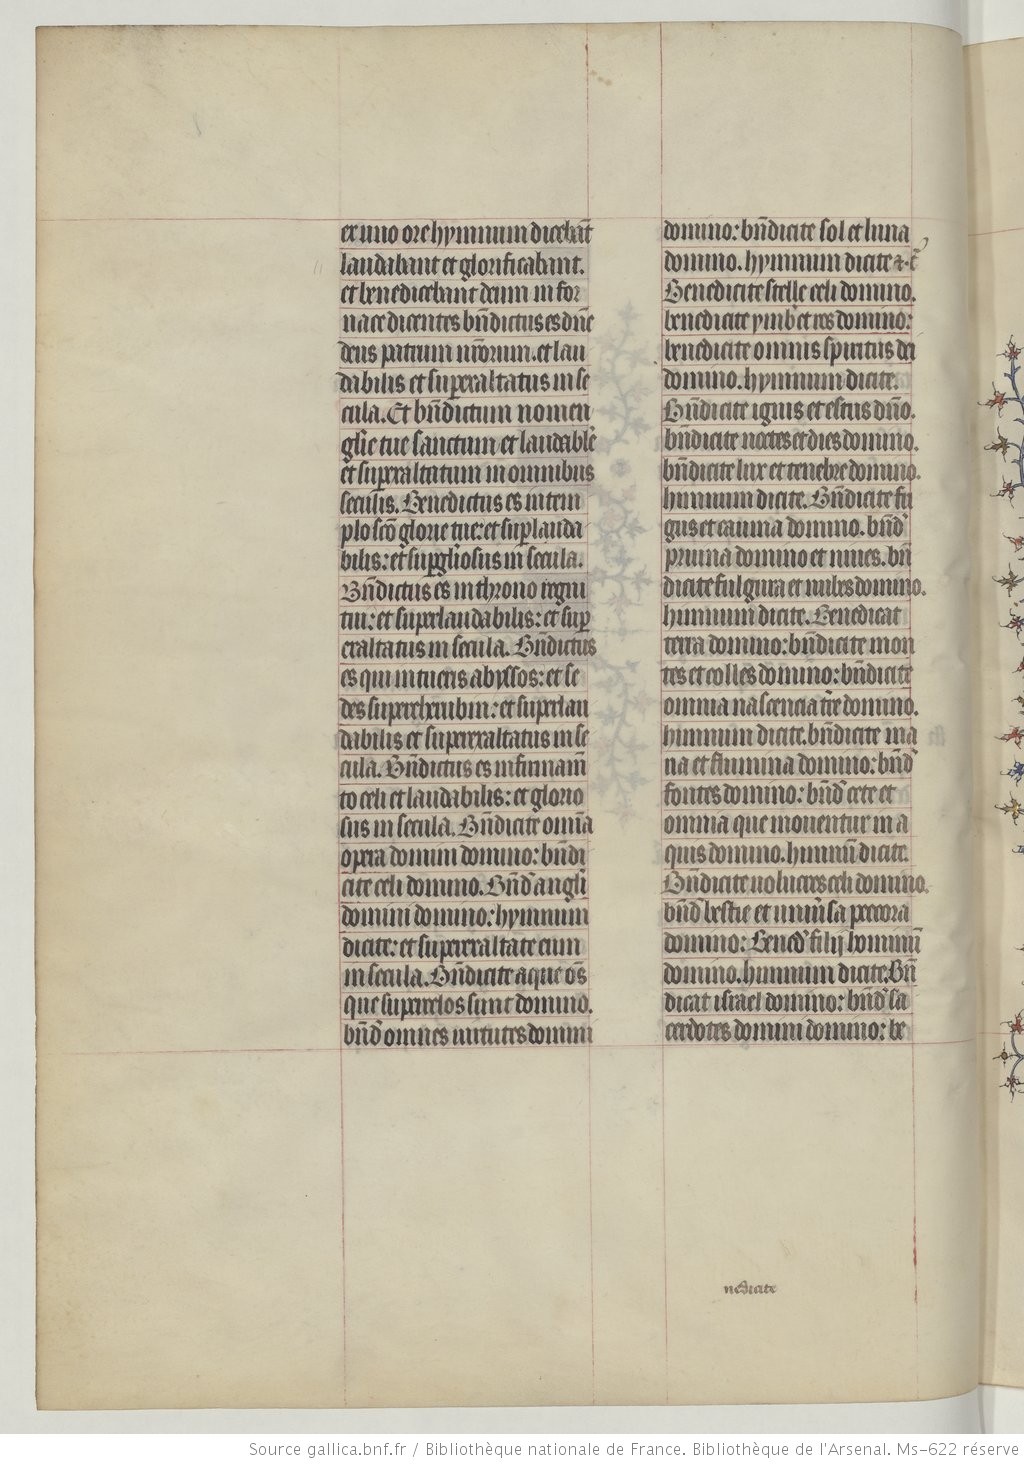 ex uno ore hymnum dicebāt
laudabant et glorificabant.
et benedicebant deum in for
nace dicentes bñdictus es dñe
deus patrum nr̄orum. et lau
dabilis et superexaltatus in se
cula. Et bñdictum nomen
glīe tue sanctum et laudabile
et superexaltatum in omnibus
seculis. Benedictus es in tem
plo sc̄o glorie tue: et suplauda
bilis: et supgliosus in secula.
Bñdictus es in throno regni
tui: et superlaudabilis: et sup
exaltatus in secula. Bñdictus
es qui intueris abyssos: et se
des super cherubin: et superlau
dabilis et superexaltatus in se
cula. Bñdictus es in firmam̄
to celi et laudabilis: et glorio
sus in secula. Bñdicite omīa
opera domini domino: bñdi
cite celi domino. Bñd' angli
domini domino: hymnum
dicite: et superexaltate eum
in secula. Bñdicite aque om̄s
que super celos sunt domino.
bñd' omnes uirtutes domini
domino: bñdicite sol et luna
domino. hymnum dicite &c̄
Benedicite stelle celi domino.
benedicite ymber et ros domino:
benedicite omnis spiritus dei
domino. hymnum dicite.
Bñdicite ignis et estus dño.
bñdicite noctes et dies domino.
bñdicite lux et tenebre domino.
himnum dicite. Bñdicite fri
gus et cauma domino. bñd'
pruina domino et niues. bñ
dicite fulgura et nubes domino.
himnum dicite. Benedicat
terra domino: bñdicite mon
tes et colles domino: bñdicite
omnia nascencia tr̄e domino.
himnum dicite. bñdicite ma
ria et flumina domino: bñd'
fontes domino: bñd' cete et
omnia que mouentur in a
quis domino. himnū dicite.
Bñdicite uolucres celi domino.
bñd' bestie et uniu'sa pecora
domino: Bened' filij hominū
domino. himnum dicite. Bñ
dicat israel domino: bñd' sa
cerdotes domini domino: be
nedicite
Source gallica.bnf.fr / Bibliothèque nationale de France. Bibliothèque de l'Arsenal. Ms-622 réserve